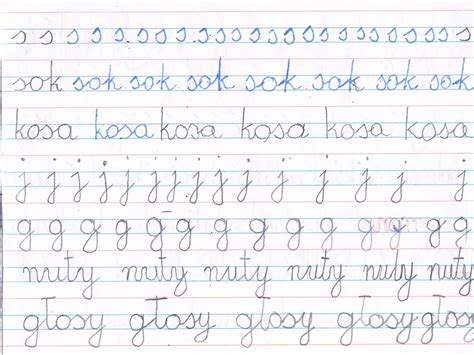 s s s s s s s s s s s s s s s s s s s s s s
sok sok sok sok sok sok sok sok
kosa kosa kosa kosa kosa kosa
j j j j j j j j j j j j j j
g g g g g g g g g g g g g g
nuty nuty nuty nuty nuty nuty
głosy głosy głosy głosy głosy